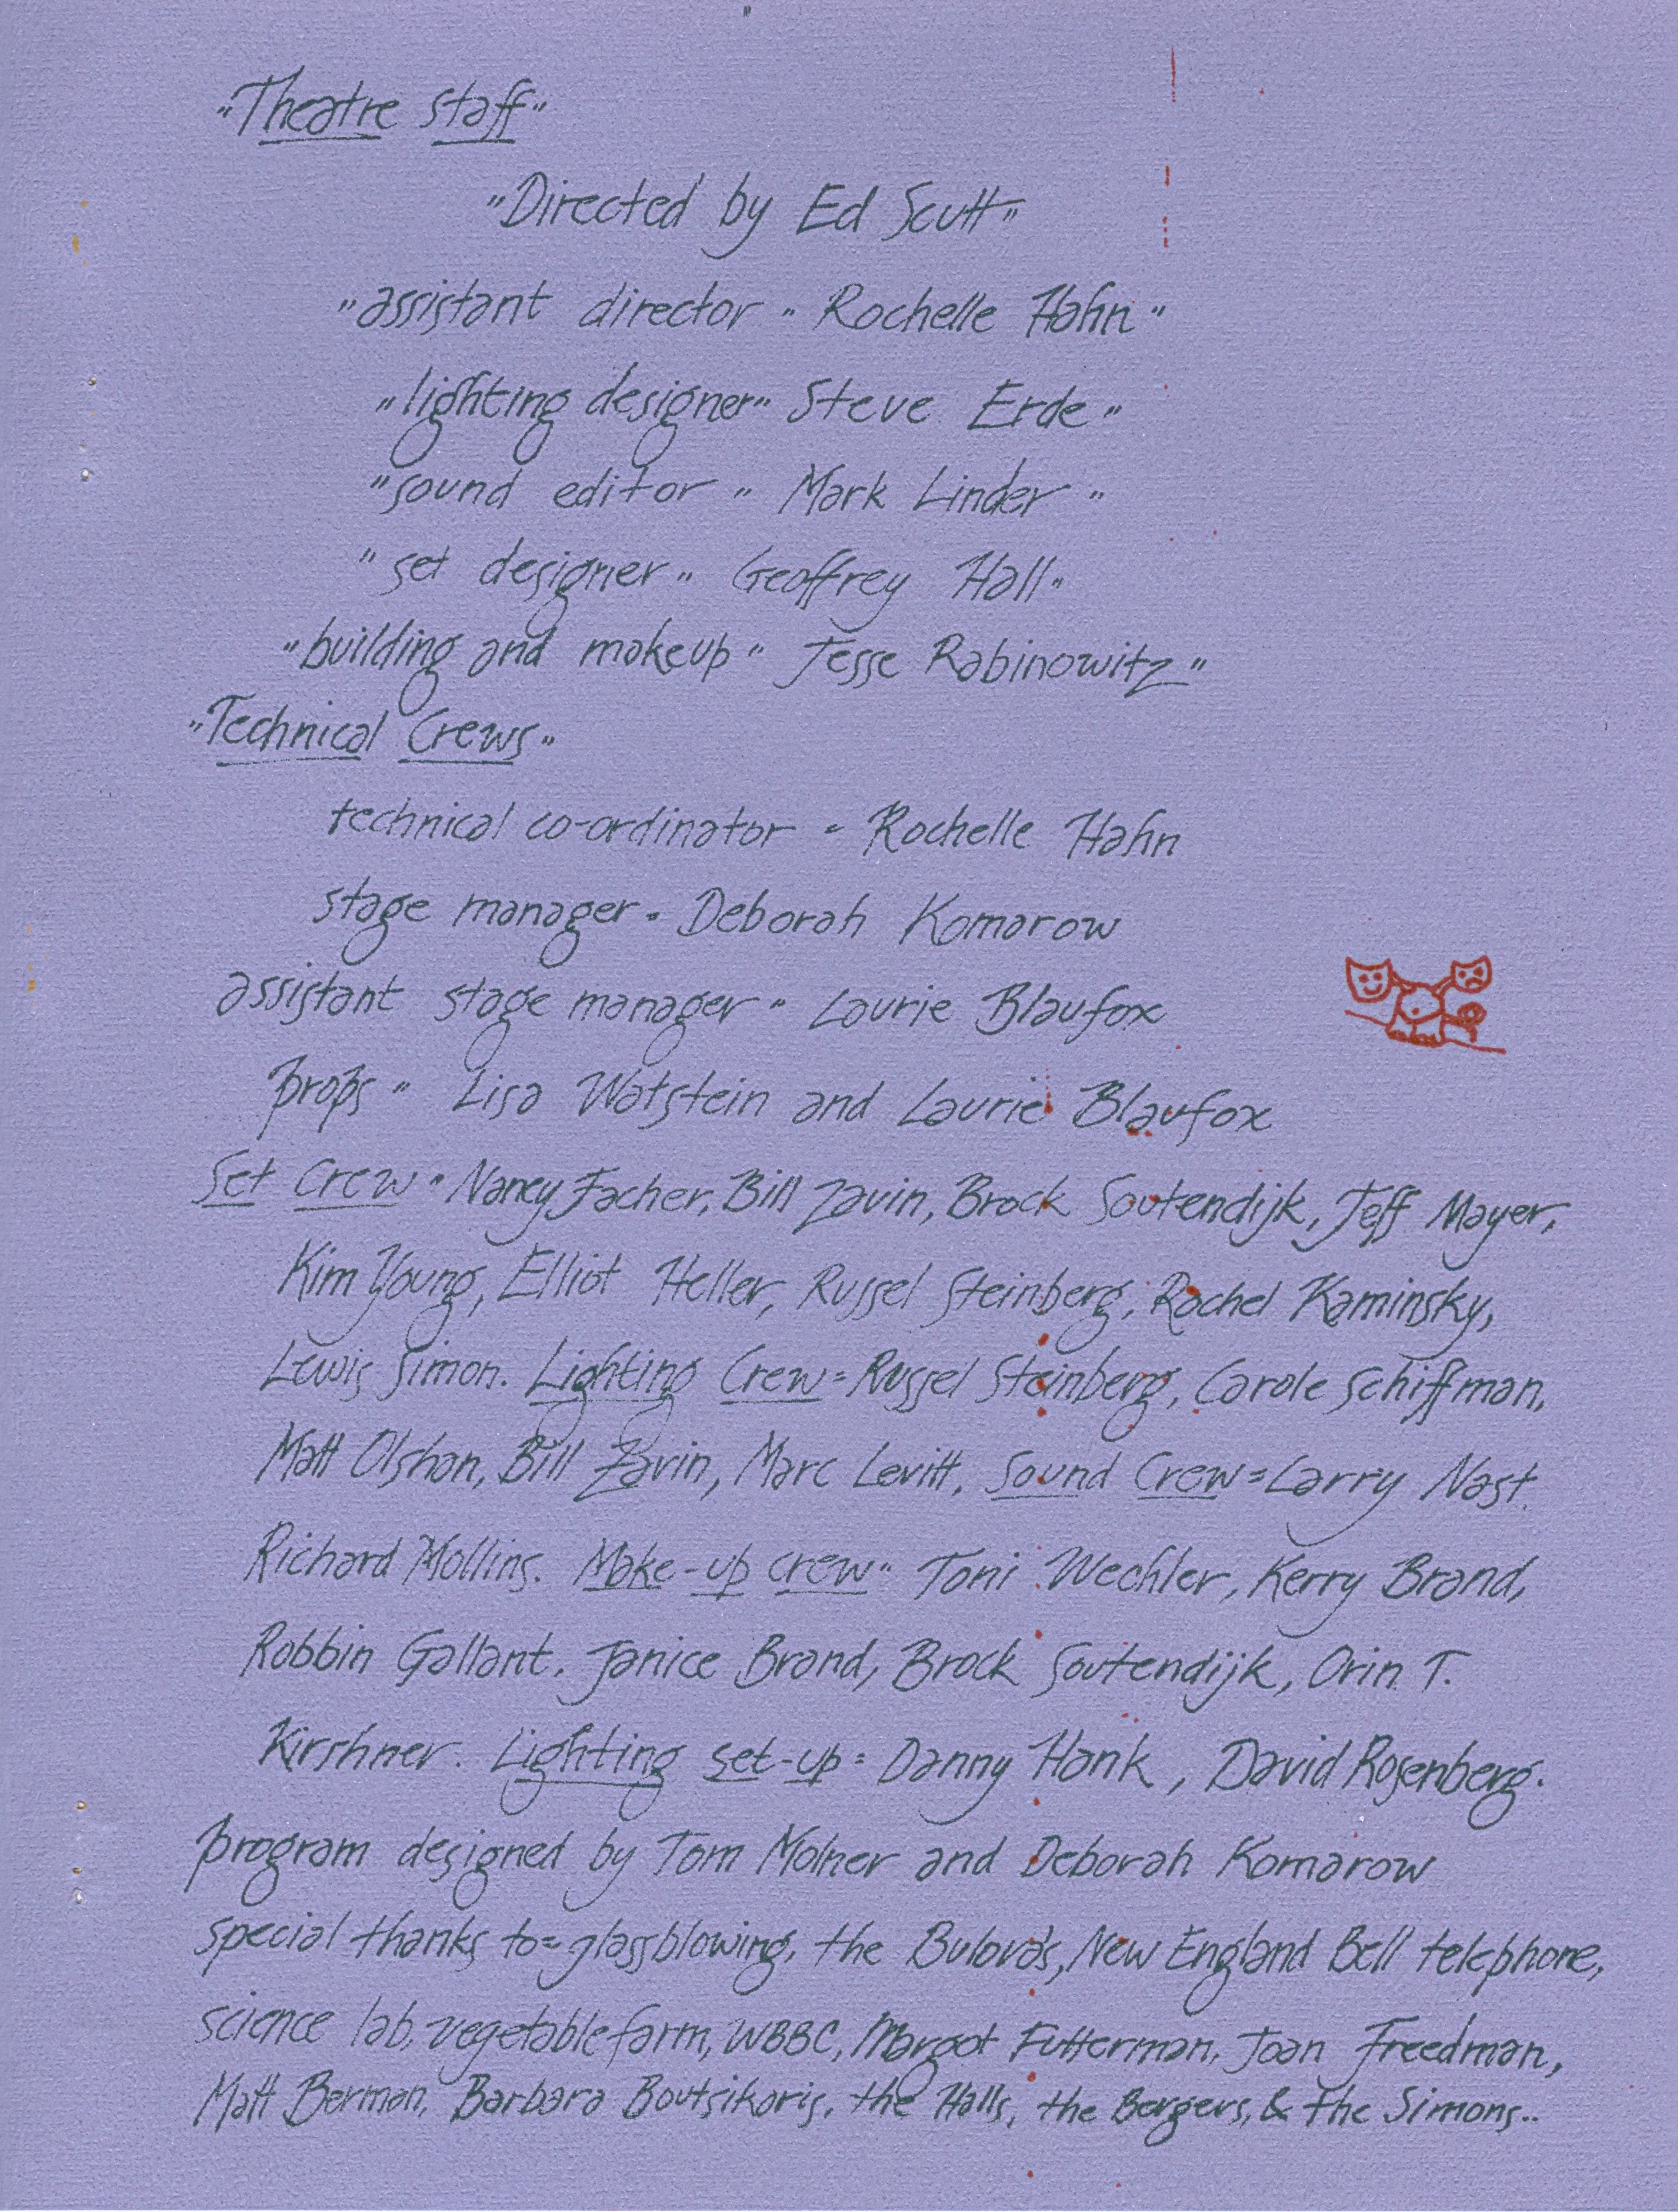 "Theatre staff"
"Directed by Ed Scutt"
"assistant director " Rochelle Hahn "
"lighting designer" Steve Erde "
"sound editor " Mark Linder "
" set designer " Geoffrey Hall "
"building and makeup " Jesse Rabinowitz "
"Technical Crews"
technical co-ordinator = Rochelle Hahn
stage manager = Deborah Komarow
assistant stage manager = Laurie Blaufox
props " Lisa Watstein and Laurie Blaufox
Set Crew " Nancy Facher, Bill Zavin, Brock Soutendijk, Jeff Mayer,
Kim Young, Elliot Heller, Russel Steinberg, Rachel Kaminsky,
Lewis Simon. Lighting Crew = Russel Steinberg, Carole Schiffman,
Matt Olshan, Bill Zavin, Marc Levitt, Sound Crew = Larry Nast.
Richard Mollins. Make-up crew " Toni Wechler, Kerry Brand,
Robbin Gallant, Janice Brand, Brock Soutendijk, Orin T.
Kirshner. Lighting set-up = Danny Hank, David Rosenberg.
program designed by Tom Molner and Deborah Komarow
special thanks to = glassblowing, the Bulova's, New England Bell telephone,
science lab, vegetable farm, WBBC, Margot Futterman, Joan Freedman,
Matt Berman, Barbara Boutsikaris, the Halls, the Bergers, & the Simons..